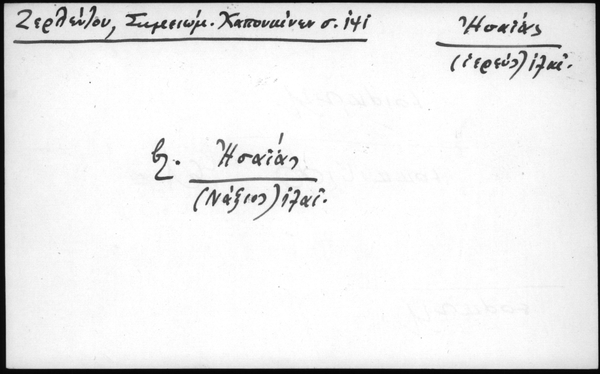 Ζερλέντου, Σημειώμ. Καπουκίνων σ. 141
Ἠσαΐας
(ἱερεύς) ἱλαϊ.
βλ. Ἠσαΐας
(Νάξιος) ἱλαϊ.